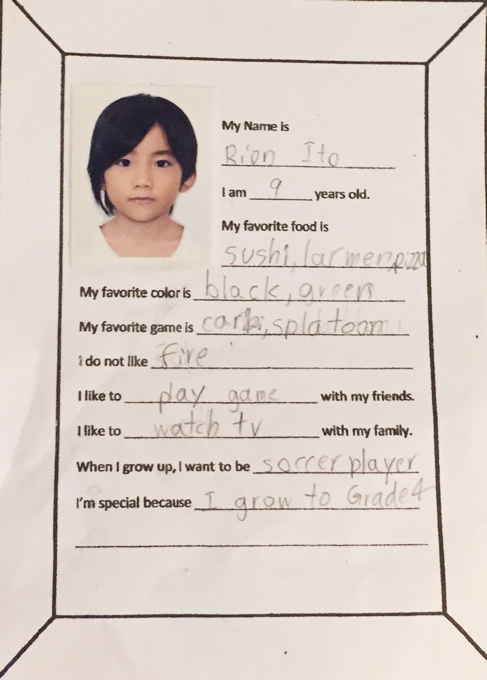 My Name is
Rion Ito
I am 9 years old.
My favorite food is
sushi, larmen, pizza
My favorite color is black, green
My favorite game is carbi, splatoon
I do not like fire
I like to play game with my friends.
I like to watch tv with my family.
When I grow up, I want to be soccer player
I'm special because I grow to Grade4